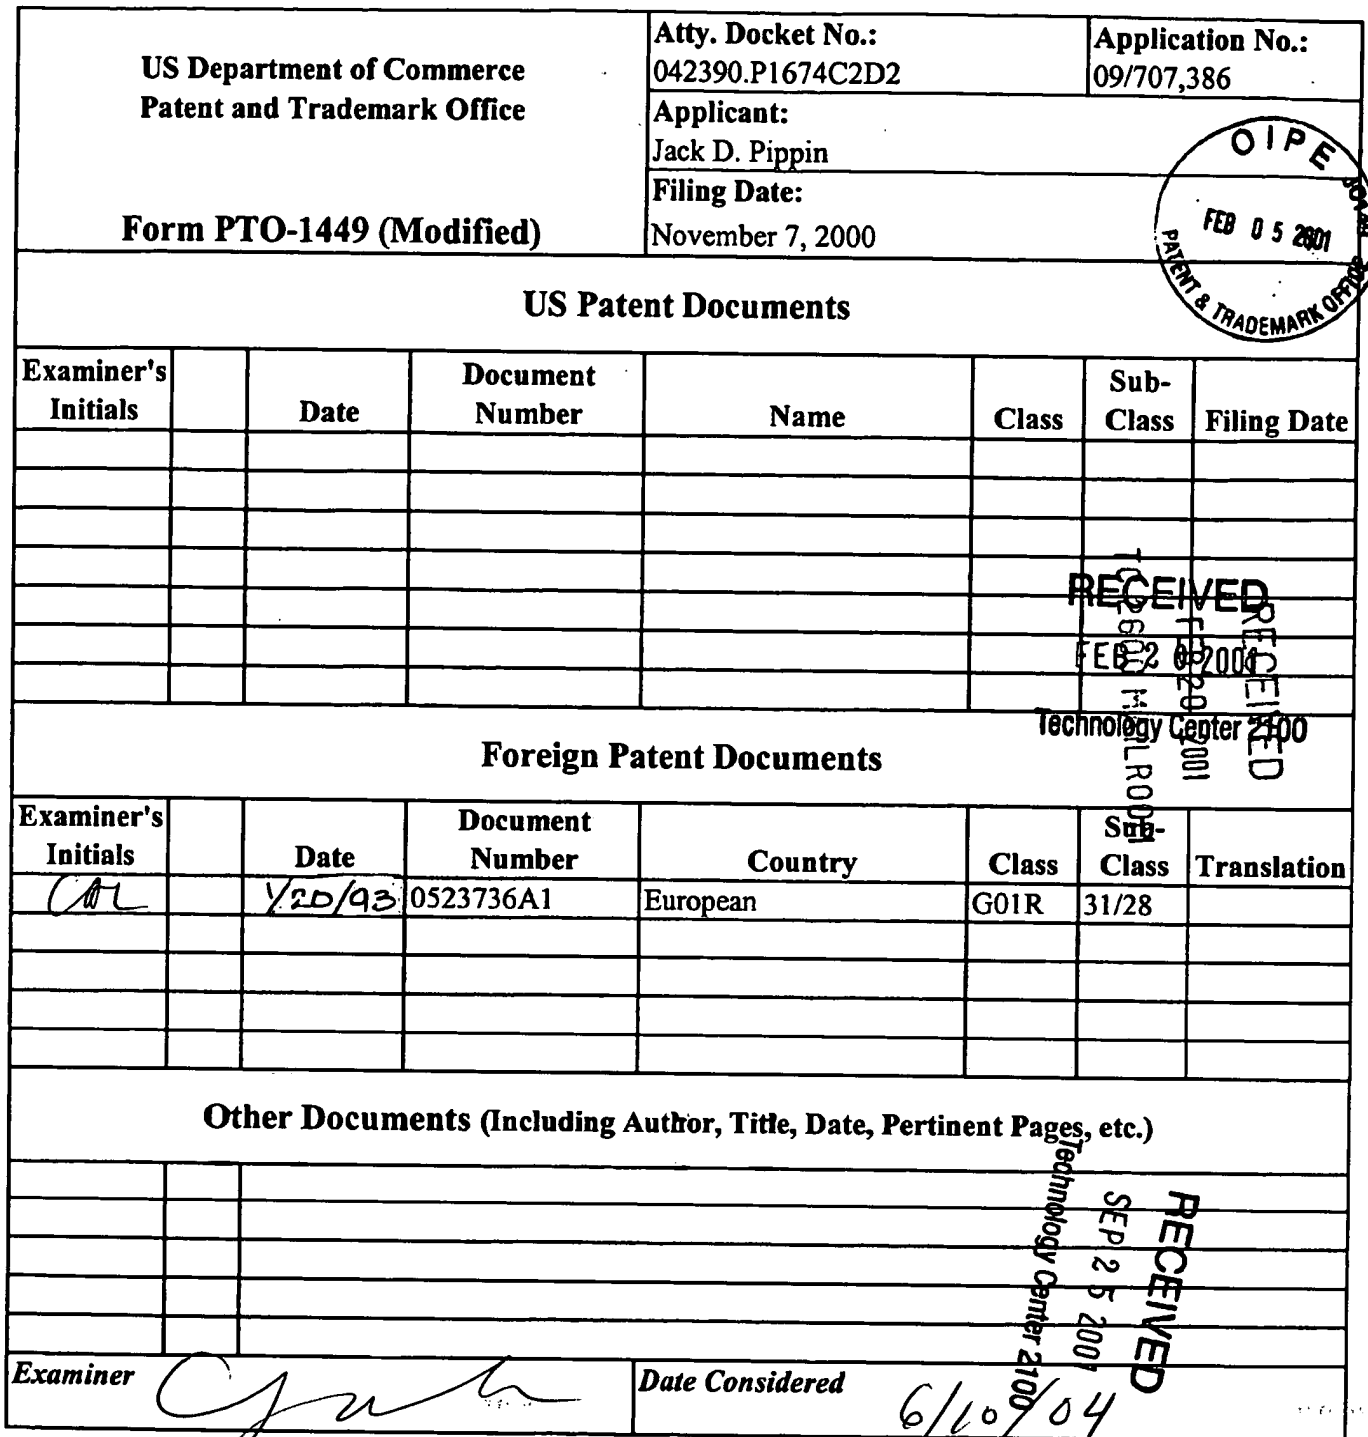 US Department of Commerce
Patent and Trademark Office
Form PTO-1449 (Modified)
Atty. Docket No.:
042390.P1674C2D2
Application No.:
09/707,386
Applicant:
Jack D. Pippin
Filing Date:
November 7, 2000
OIPE
FEB 05 2001
PATENT & TRADEMARK OFFICE
US Patent Documents
Examiner's Initials Date Document Number Name Class Sub-Class Filing Date
RECEIVED
FEB 20 2001
Technology Center 2100
RECEIVED
FEB 20 2001
TC 2600 MAILROOM
Foreign Patent Documents
Examiner's Initials Date Document Number Country Class Sub-Class Translation
1/20/93 0523736A1 European G01R 31/28
Other Documents (Including Author, Title, Date, Pertinent Pages, etc.)
RECEIVED
SEP 25 2001
Technology Center 2100
Examiner
Date Considered 6/10/04